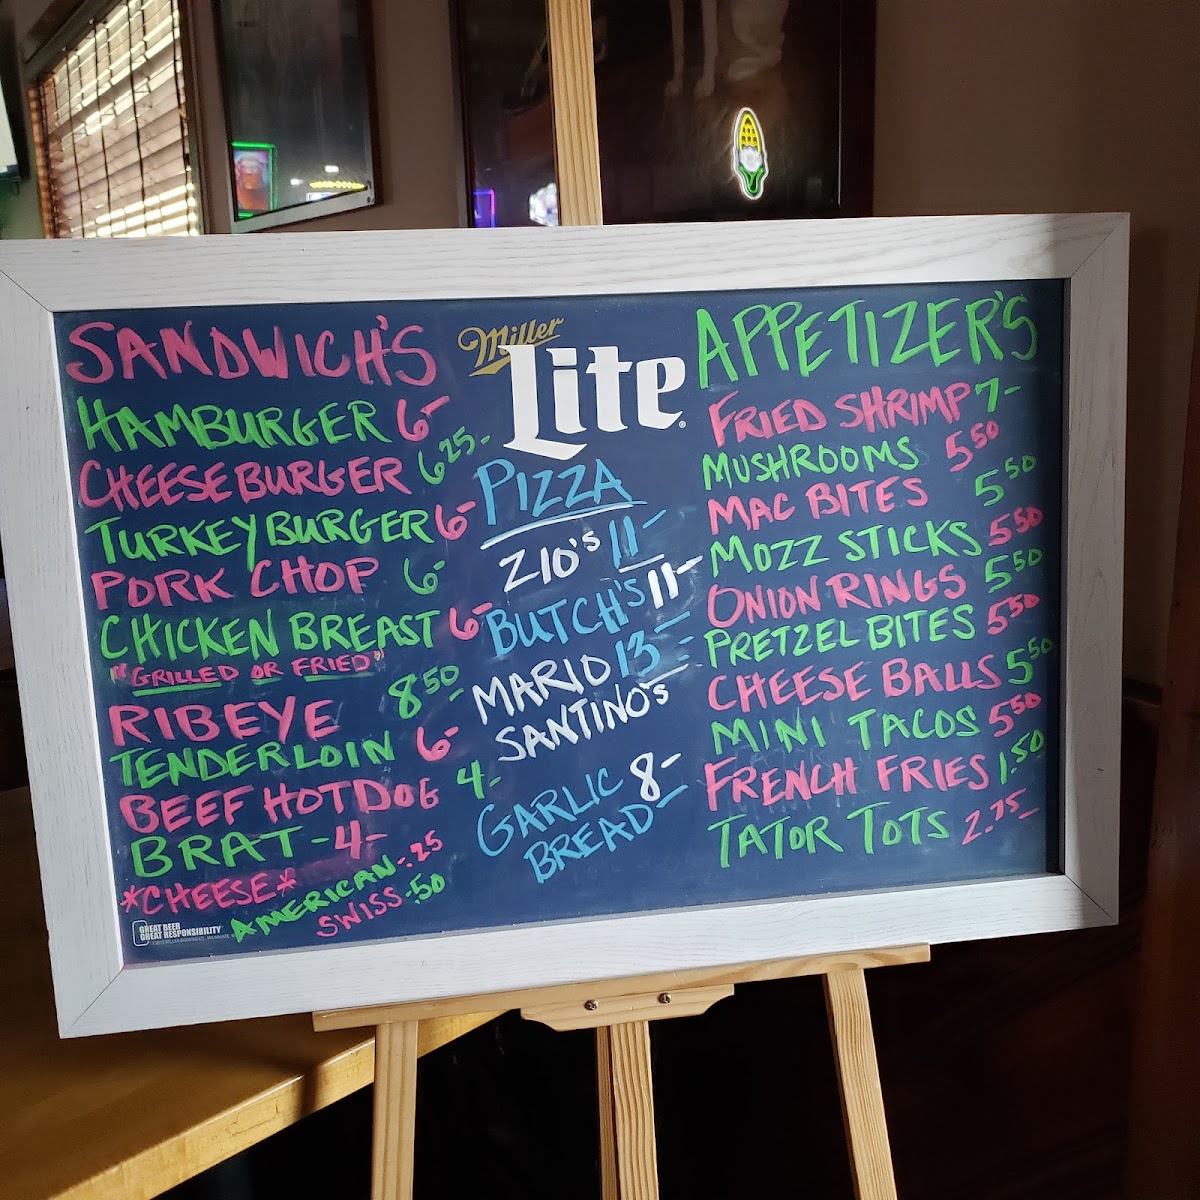 SANDWICH'S
HAMBURGER 6-
CHEESEBURGER 6 25-
TURKEY BURGER 6-
PORK CHOP 6-
CHICKEN BREAST 6-
"GRILLED OR FRIED"
RIBEYE 8 50
TENDERLOIN 6-
BEEF HOT DOG 4-
BRAT - 4-
*CHEESE*
AMERICAN-.25
SWISS-.50
GREAT BEER
GREAT RESPONSIBILITY
Miller
Lite
PIZZA
ZIO'S 11-
BUTCH'S 11-
MARIO 13-
SANTINO'S
GARLIC 8-
BREAD
APPETIZER'S
FRIED SHRIMP 7-
MUSHROOMS 5 50
MAC BITES 5 50
MOZZ STICKS 5 50
ONION RINGS 5 50
PRETZEL BITES 5 50
CHEESE BALLS 5 50
MINI TACOS 5 50
FRENCH FRIES 1.50
TATOR TOTS 2.75